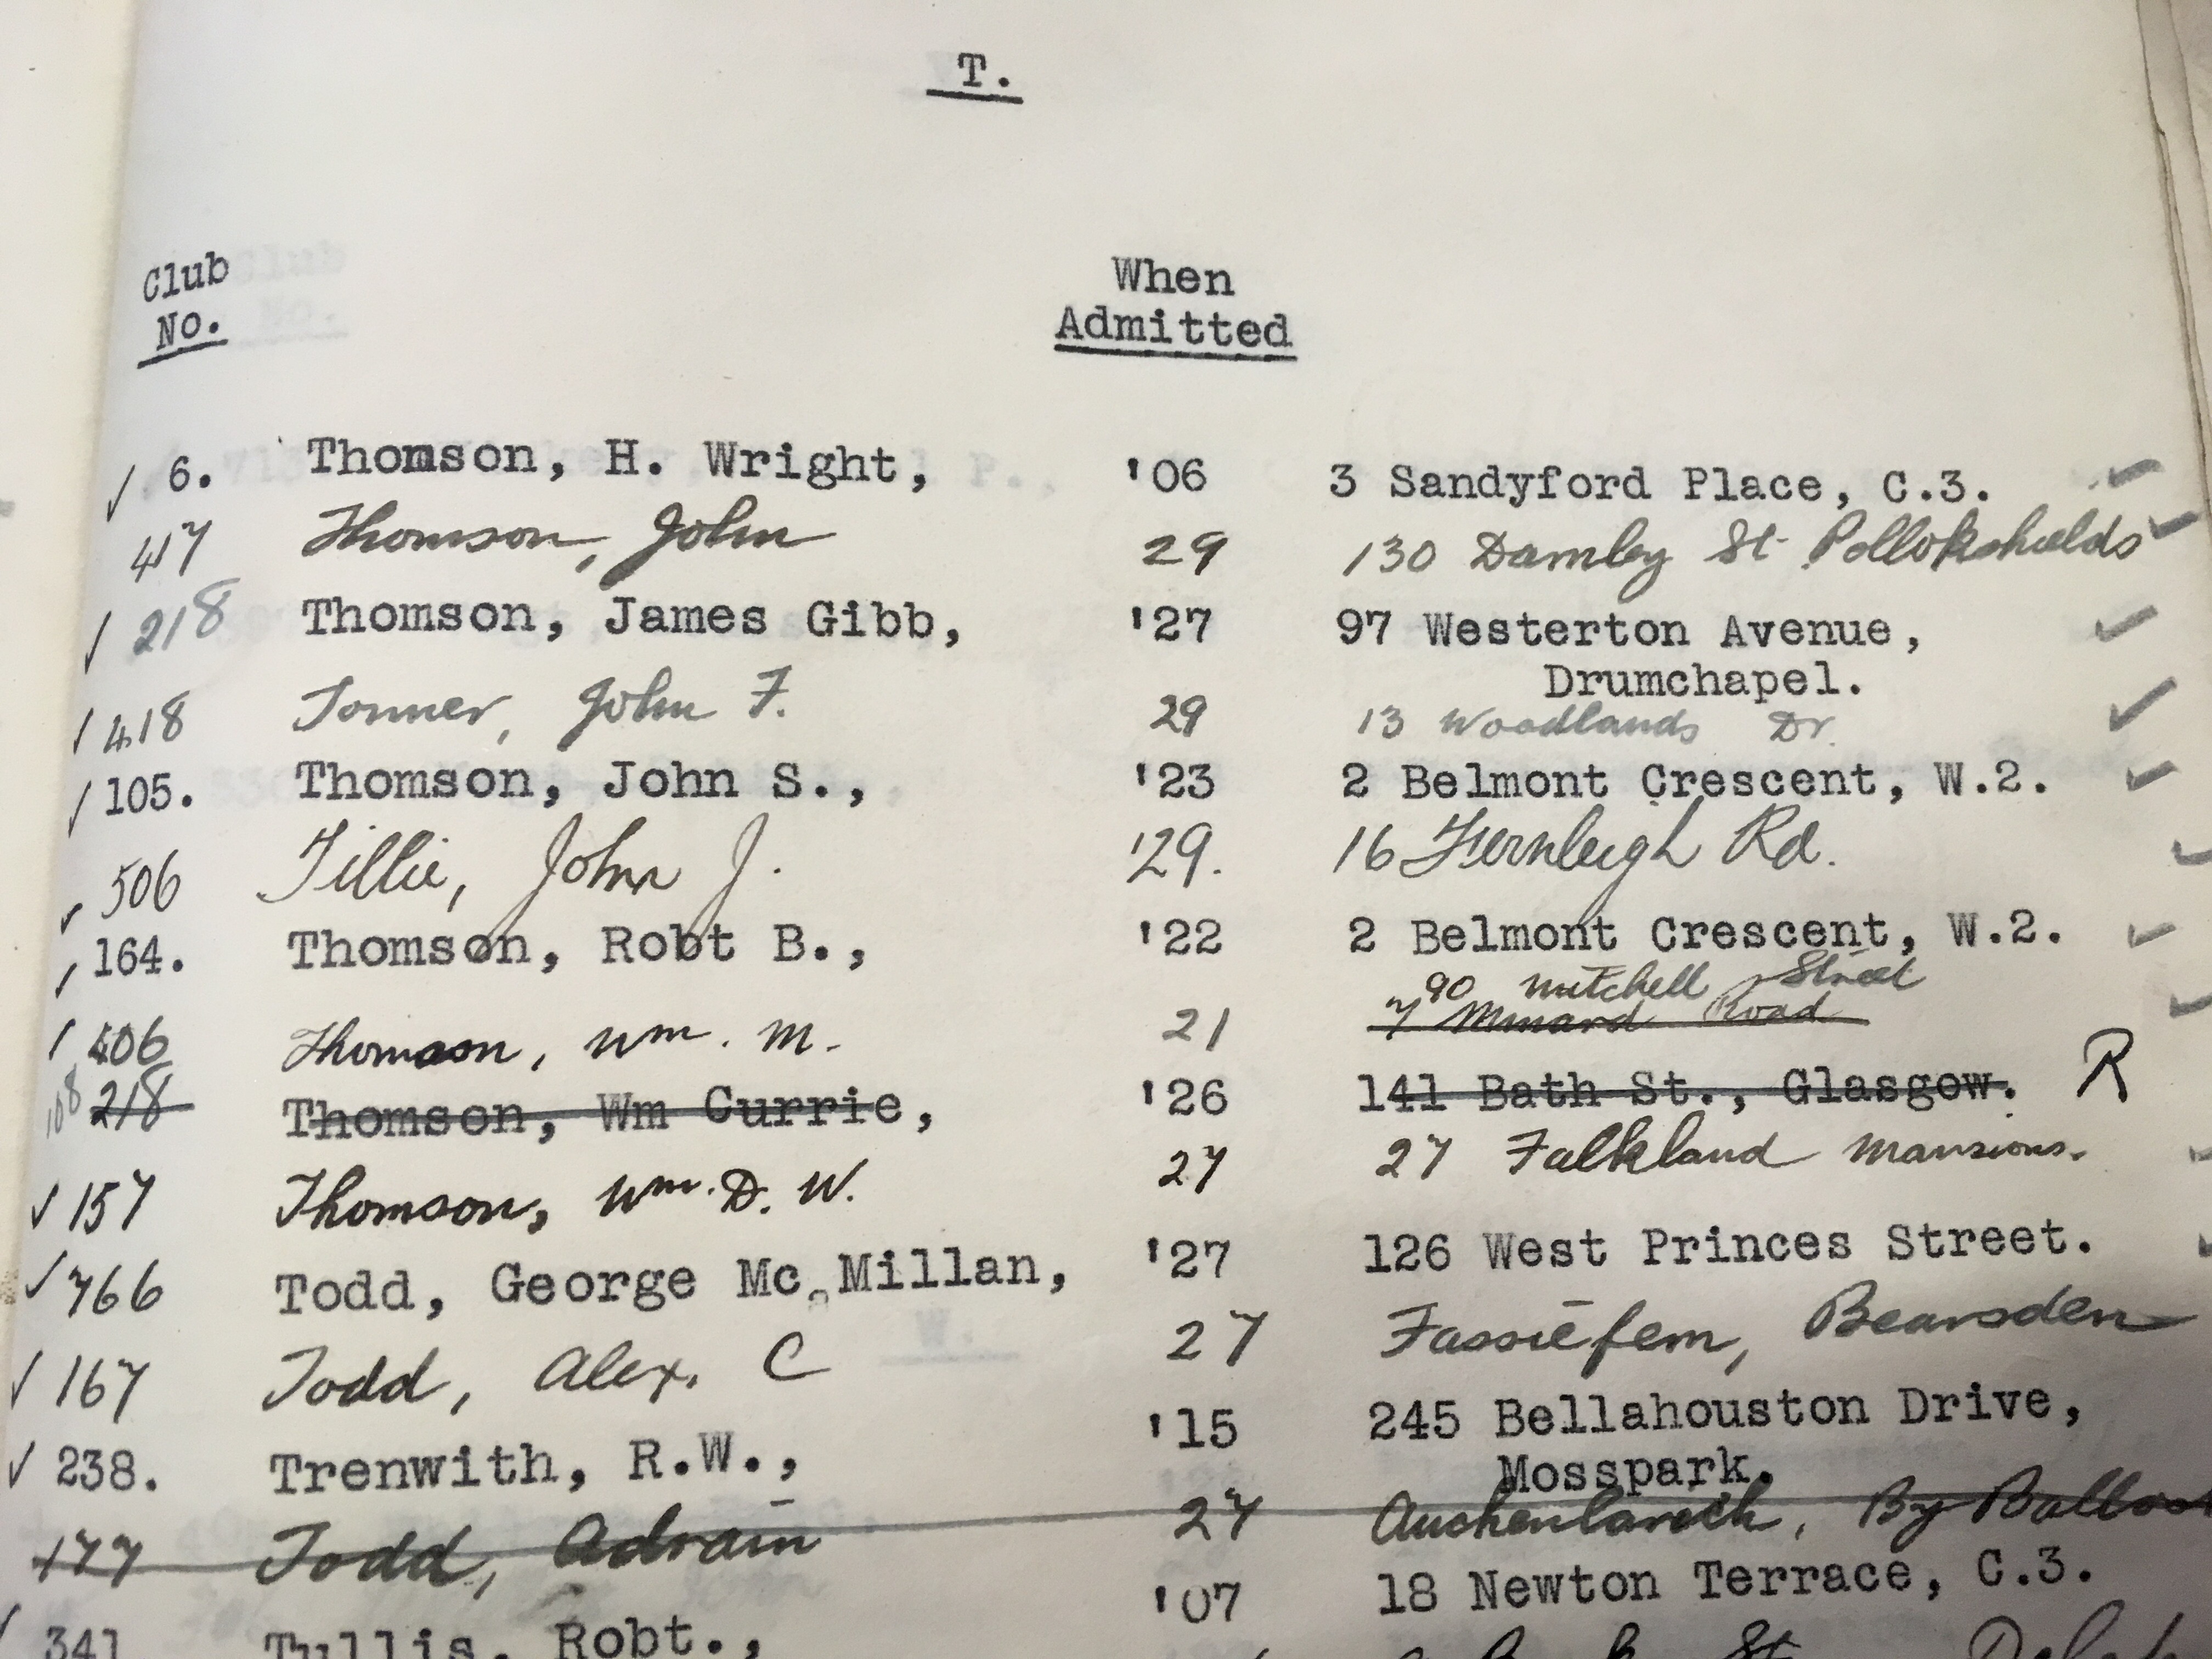 T.
Club No. When Admitted
6. Thomson, H. Wright, '06 3 Sandyford Place, C.3.
417 Thomson, John 29 130 Darnley St. Pollokshields
218 Thomson, James Gibb, '27 97 Westerton Avenue,
Drumchapel.
418 Tonner, John F. 29 13 Woodlands Dr.
105. Thomson, John S., '23 2 Belmont Crescent, W.2.
506 Tillie, John J. '29. 16 Fernleigh Rd.
164. Thomson, Robt B., '22 2 Belmont Crescent, W.2.
90 Mitchell Street
406 Thomson, Wm. M. 21 7 Minard Road
218 Thomson, Wm Currie, '26 141 Bath St., Glasgow. R
157 Thomson, Wm. D. W. 27 27 Falkland Mansions.
466 Todd, George Mc.Millan, '27 126 West Princes Street.
167 Todd, Alex. C 27 Fassiefern, Bearsden
238. Trenwith, R.W., '15 245 Bellahouston Drive,
Mosspark.
177 Todd, Adrain 27 By Balloch
341 Tullis, Robt., '07 18 Newton Terrace, C.3.
St.